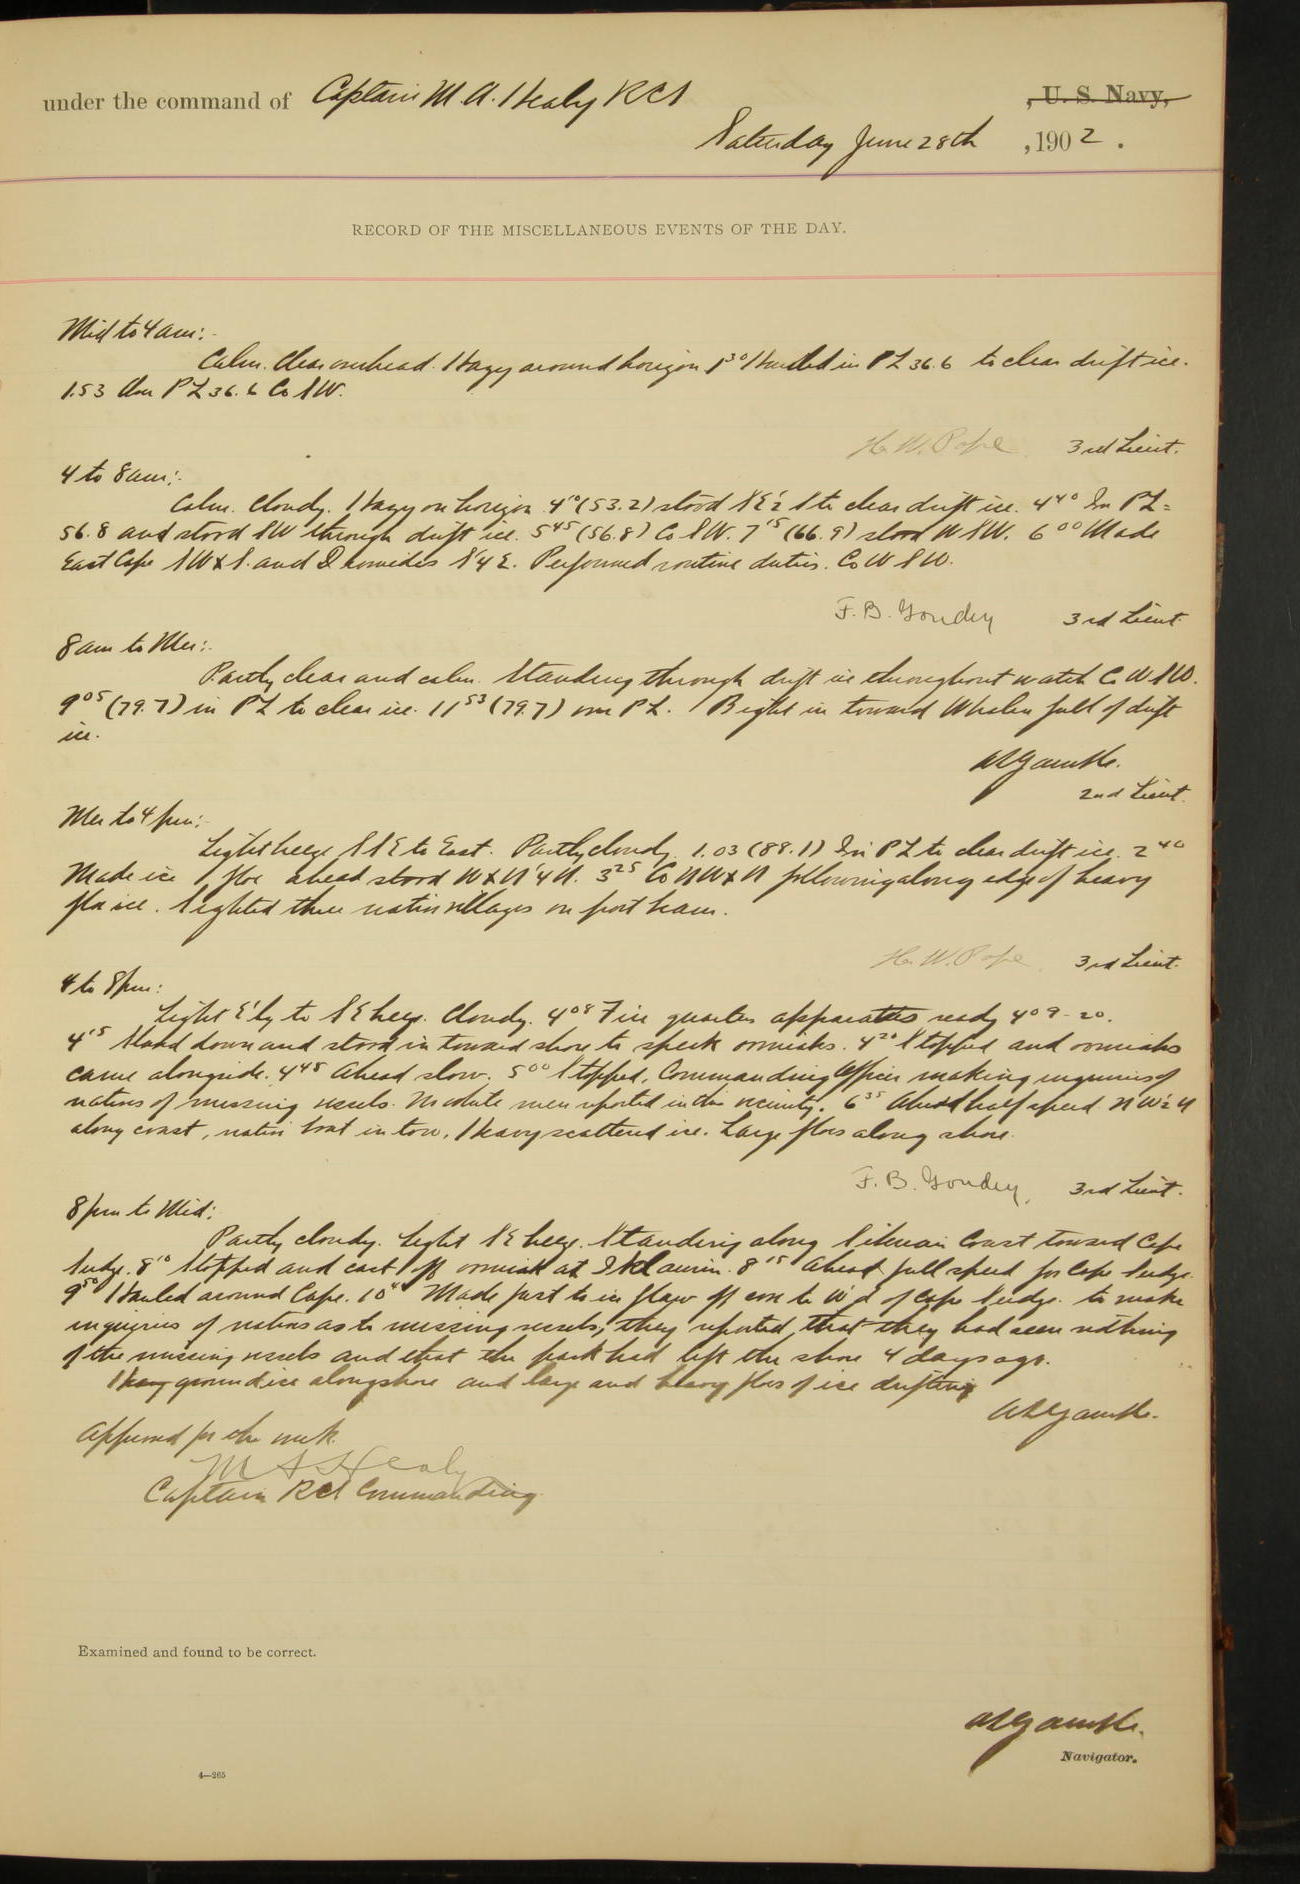 under the command of Captain M. A. Healy RCS , U. S. Navy,
Saturday June 28th , 1902 .
RECORD OF THE MISCELLANEOUS EVENTS OF THE DAY.
Mid to 4 am:-
Calm. Clear overhead. Hazy around horizon 1 30 Hauled in PL 36.6 to clear drift ice.
1.53 Over PL 36.6 Co SW.
H. W. Pope. 3rd Lieut.
4 to 8 am:-
Calm. Cloudy. Hazy on horizon. 4 10 (53.2) stood SE½S to clear drift ice. 4 40 In PL=
56.8 and stood SW through drift ice. 5 45 (56.8) Co SW. 7 15 (66.9) stood WSW. 6 00 Made
East Cape SWxS. and Diomedes S¼E. Performed routine duties. Co WSW.
F. B. Goudey 3rd Lieut.
8 am to Mer:-
Partly clear and calm. Standing through drift ice throughout watch Co WSW.
9 05 (79.7) in PL to clear ice. 11 53 (79.7) over PL. Bight in toward Whalen full of drift
ice.
A L Gamble.
2nd Lieut.
Mer to 4 pm:-
Light breeze SSE to East. Partly cloudy. 1.03 (88.1) In PL to clear drift ice. 2 40
Made ice floe ahead stood WxN¼N. 3 25 Co NWxN following along edge of heavy
floe ice. Sighted three native villages on port beam.
H. W. Pope. 3rd Lieut.
4 to 8 pm:
Light E'ly to SE breeze. Cloudy. 4 08 Fire quarters apparatus ready 4 09-20.
4 15 Slowed down and stood in toward shore to speak oomiaks. 4 20 Stopped and oomiaks
came alongside. 4 45 Ahead slow. 5 00 Stopped. Commanding Officer making inquiries of
natives of missing vessels. No white men reported in the vicinity. 6 35 Ahead half speed NW½N
along coast, native boat in tow. Heavy scattered ice. Large floes along shore.
F. B. Goudey. 3rd Lieut.
8 pm to Mid:
Partly cloudy. Light SE breeze. Standing along Siberian Coast toward Cape
Serdze. 8 10 Stopped and cast off oomiak at 8 15 Ahead full speed for Cape Serdze.
9 50 Hauled around Cape. 10 Made fast to ice floe off to W'd of Cape Serdze. to make
inquiries of natives as to missing vessels, they reported, that they had seen nothing
of the missing vessels and that the pack had left the shore 4 days ago.
Heavy ground ice alongshore and large and heavy floes of ice drifting
A L Gamble.
Approved for the week.
M A Healy
Captain RCS Commanding.
Examined and found to be correct.
A L Gamble.
Navigator.
4—265